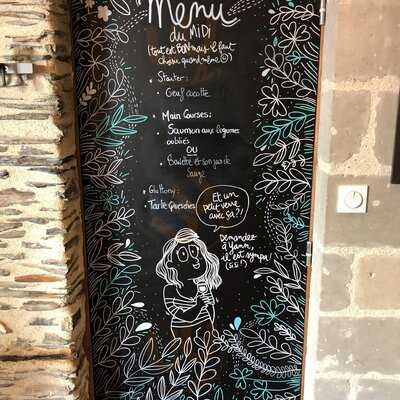 Menu
du MIDI
(tout est BON mais il faut
choisir quand même ☺)
• Starter :
Oeuf cocotte
• Main Courses :
• Saumon aux légumes
oubliés
OU
• Bavette et son jus de
Sauge
• Gluttony :
Tarte Quetsches
Et un
petit verre
avec ça ?!
Demandez
à Yann,
il est sympa !
(si si !)